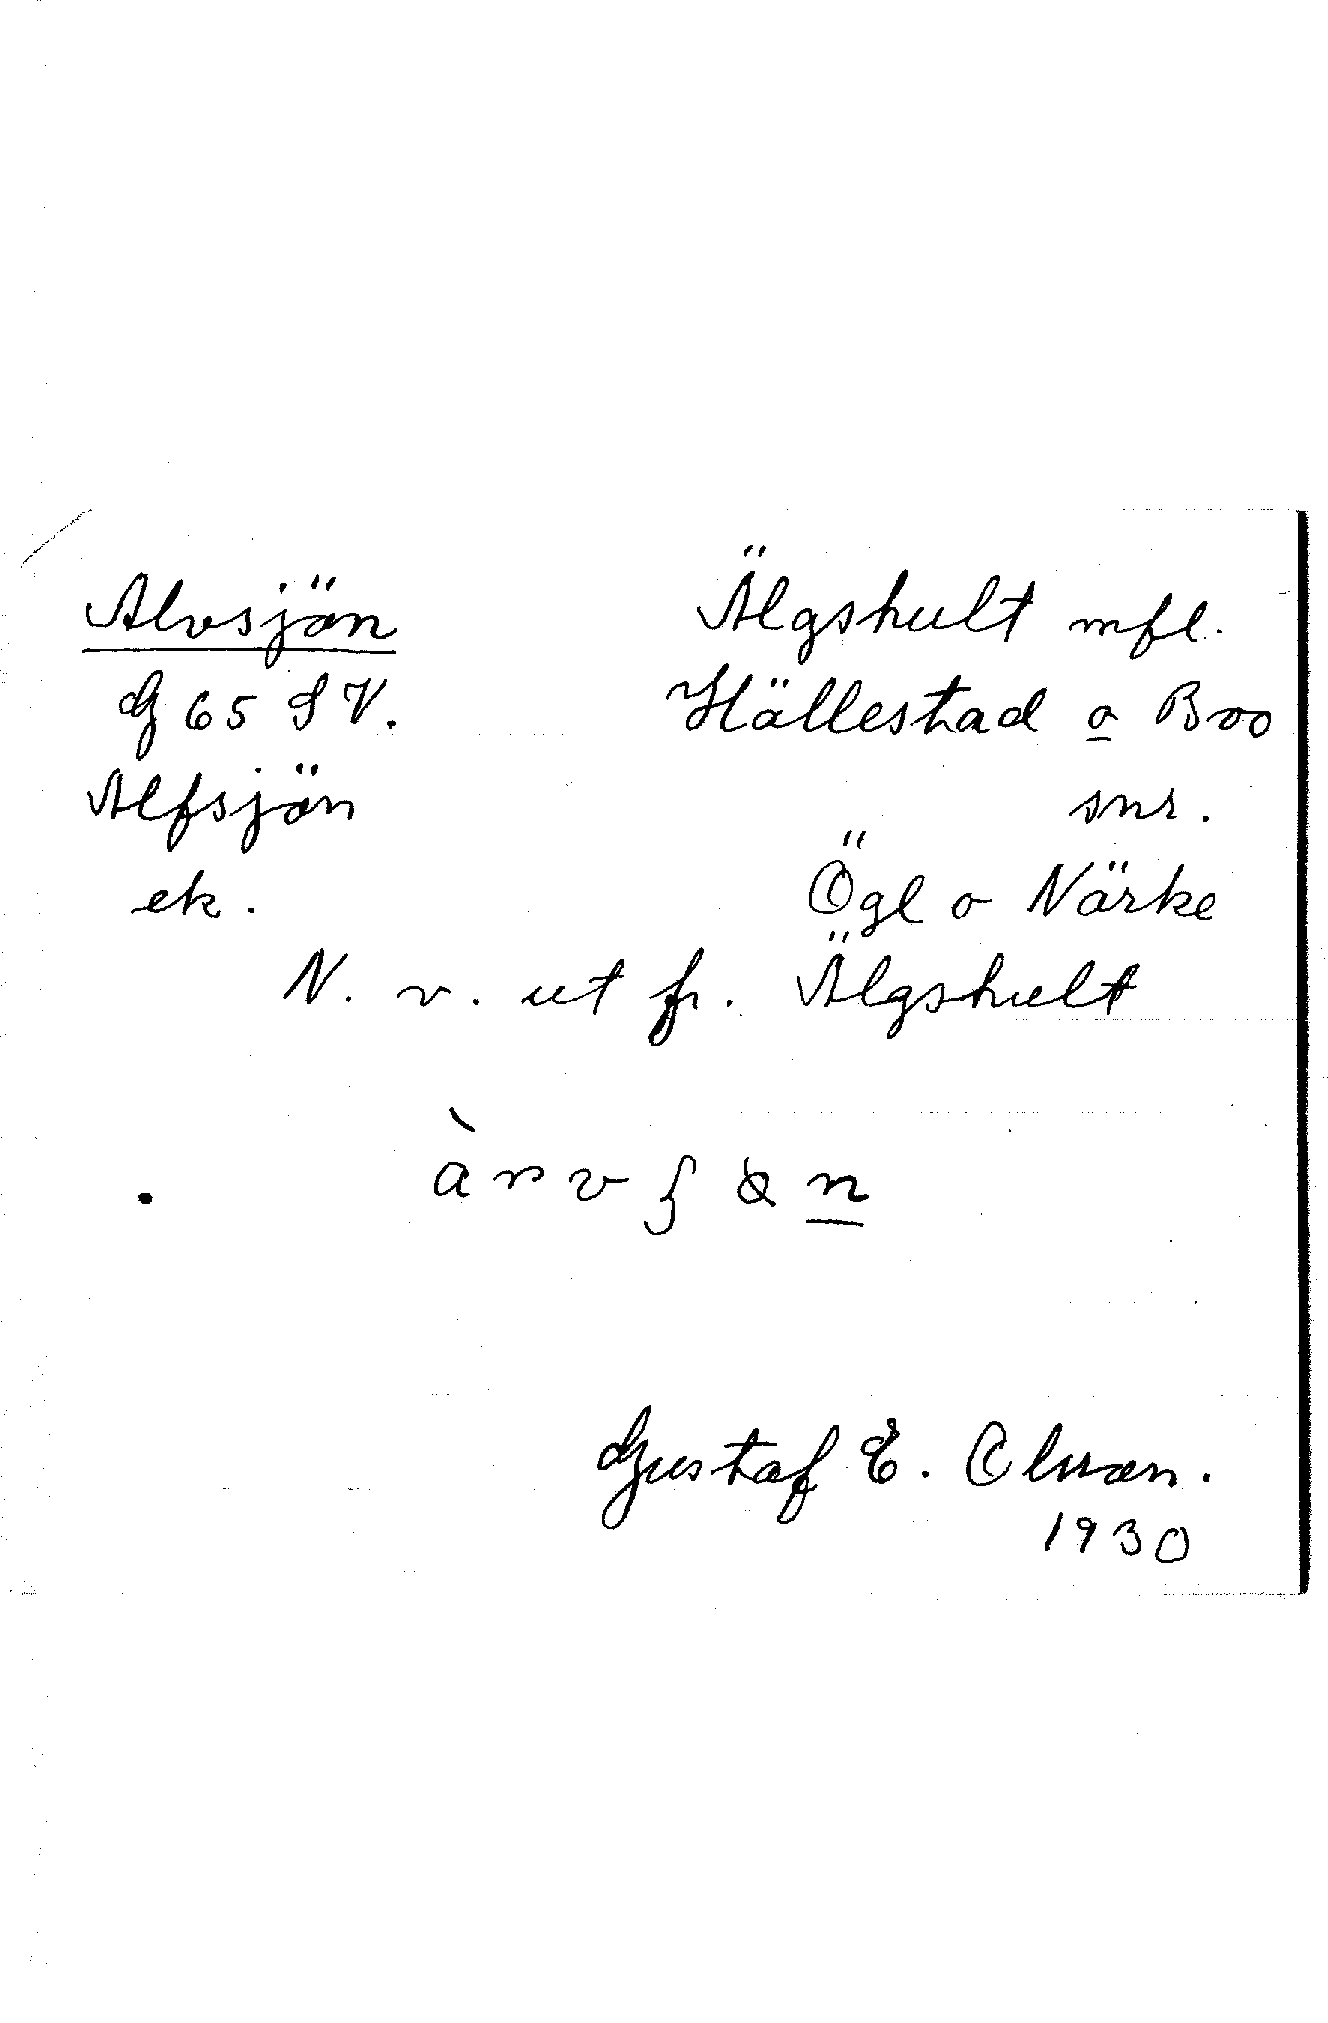 Alvsjön
G 65 SV.
Alfsjön
ek.
Älgshult mfl.
Hällestad o Boo
snr.
Ögl o Närke
N. v. ut fr. Älgshult
Gustaf E. Olsson.
1930